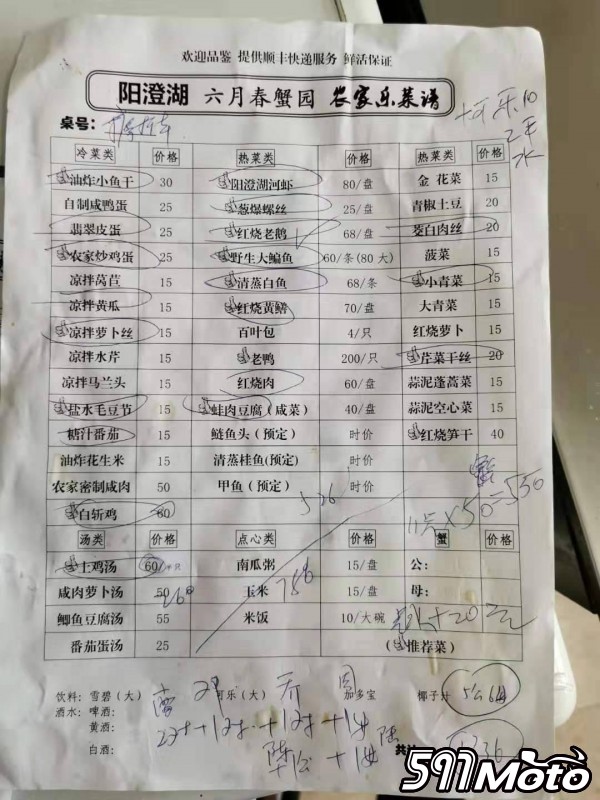 欢迎品鉴 提供顺丰快递服务 鲜活保证
阳澄湖 六月春蟹园 农家乐菜谱
桌号:
冷菜类 价格 热菜类 价格 热菜类 价格
油炸小鱼干 30 阳澄湖河虾 80/盘 金花菜 15
自制咸鸭蛋 25 葱爆螺丝 25/盘 青椒土豆 20
翡翠皮蛋 25 红烧老鹅 68/盘 茭白肉丝 20
农家炒鸡蛋 25 野生大鳊鱼 60/条(80 大) 菠菜 15
凉拌莴苣 15 清蒸白鱼 68/条 小青菜 15
凉拌黄瓜 15 红烧黄鳝 70/盘 大青菜 15
凉拌萝卜丝 15 百叶包 4/只 红烧萝卜 15
凉拌水芹 15 老鸭 200/只 芹菜干丝 20
凉拌马兰头 15 红烧肉 60/盘 蒜泥蓬蒿菜 15
盐水毛豆节 15 蛙肉豆腐(咸菜) 40/盘 蒜泥空心菜 15
糖汁番茄 15 鲢鱼头(预定) 时价 红烧笋干 40
油炸花生米 15 清蒸桂鱼(预定) 时价
农家密制咸肉 50 甲鱼(预定) 时价
白斩鸡 80
526
蟹
11号×50=550
汤类 价格 点心类 价格 蟹 价格
土鸡汤 60/半只 南瓜粥 15/盘 公:
咸肉萝卜汤 50 玉米 15/盘 母:
756
鲫鱼豆腐汤 55 米饭 10/大碗
+20元
番茄蛋汤 25 (推荐菜)
饮料: 雪碧(大) 可乐(大) 加多宝 椰子汁
酒水: 啤酒:
黄酒:
白酒:
共计
591Moto